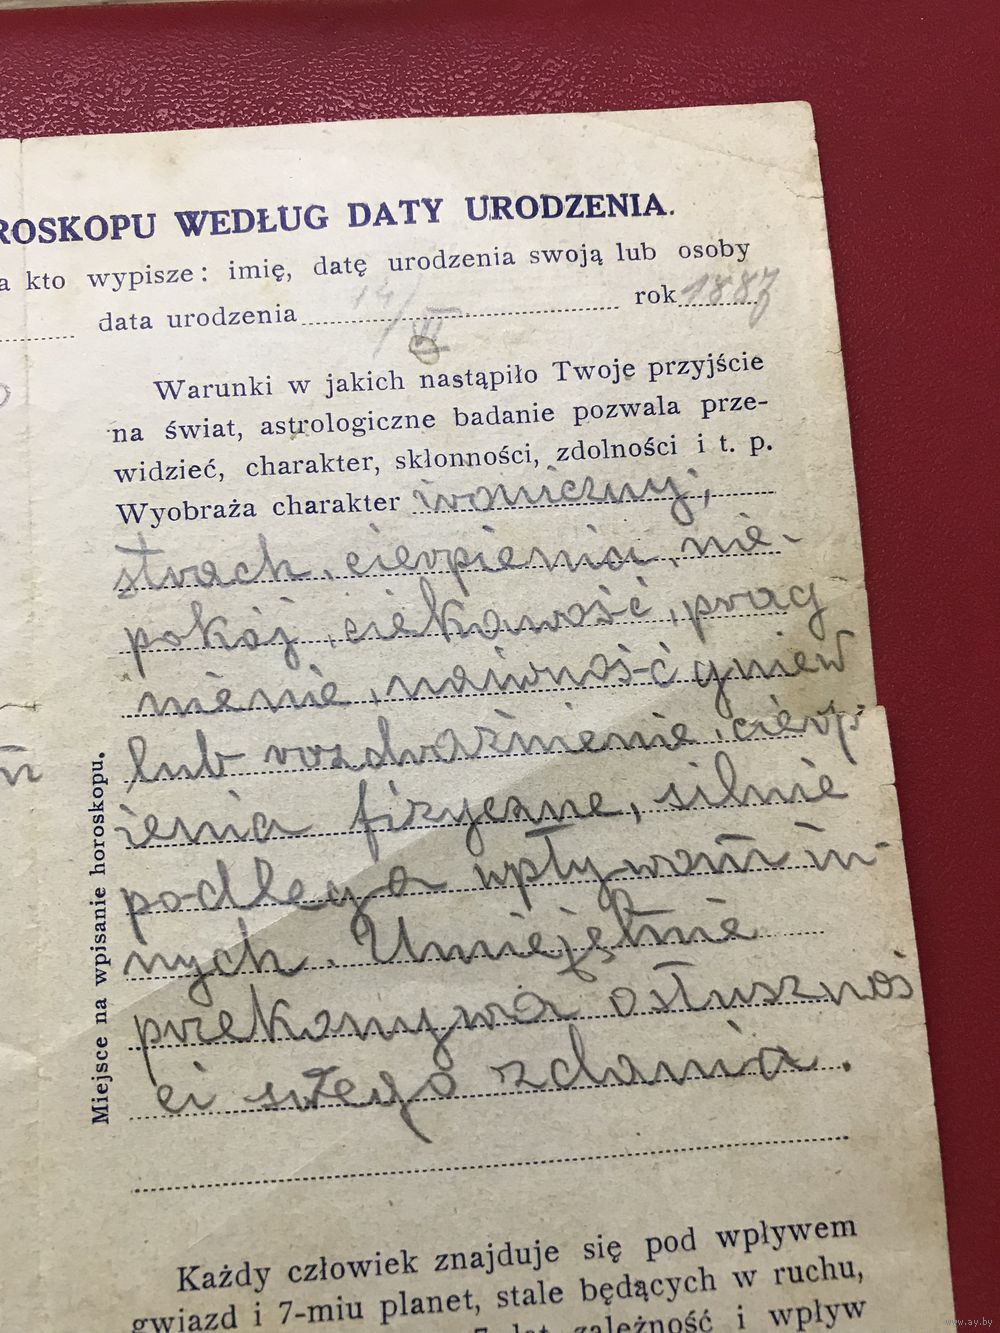 ROSKOPU WEDŁUG DATY URODZENIA.
a kto wypisze: imię, datę urodzenia swoją lub osoby
data urodzenia 14/VI rok 1887
Warunki w jakich nastąpiło Twoje przyjście
na świat, astrologiczne badanie pozwala prze-
widzieć, charakter, skłonności, zdolności i t. p.
Wyobraża charakter ironiczny,
strach, cierpienia, nie-
pokój, ciekawość, prag
nienie, naiwność gniew
lub rozdraźnienie, cierp
ienia fizyczne, silnie
podlega wpływom in-
nych. Umiejętnie
przekonywa o słusznoś
ci swego zdania.
Miejsce na wpisanie horoskopu.
Każdy człowiek znajduje się pod wpływem
gwiazd i 7-miu planet, stale będących w ruchu,
zależność i wpływ
www.ay.by